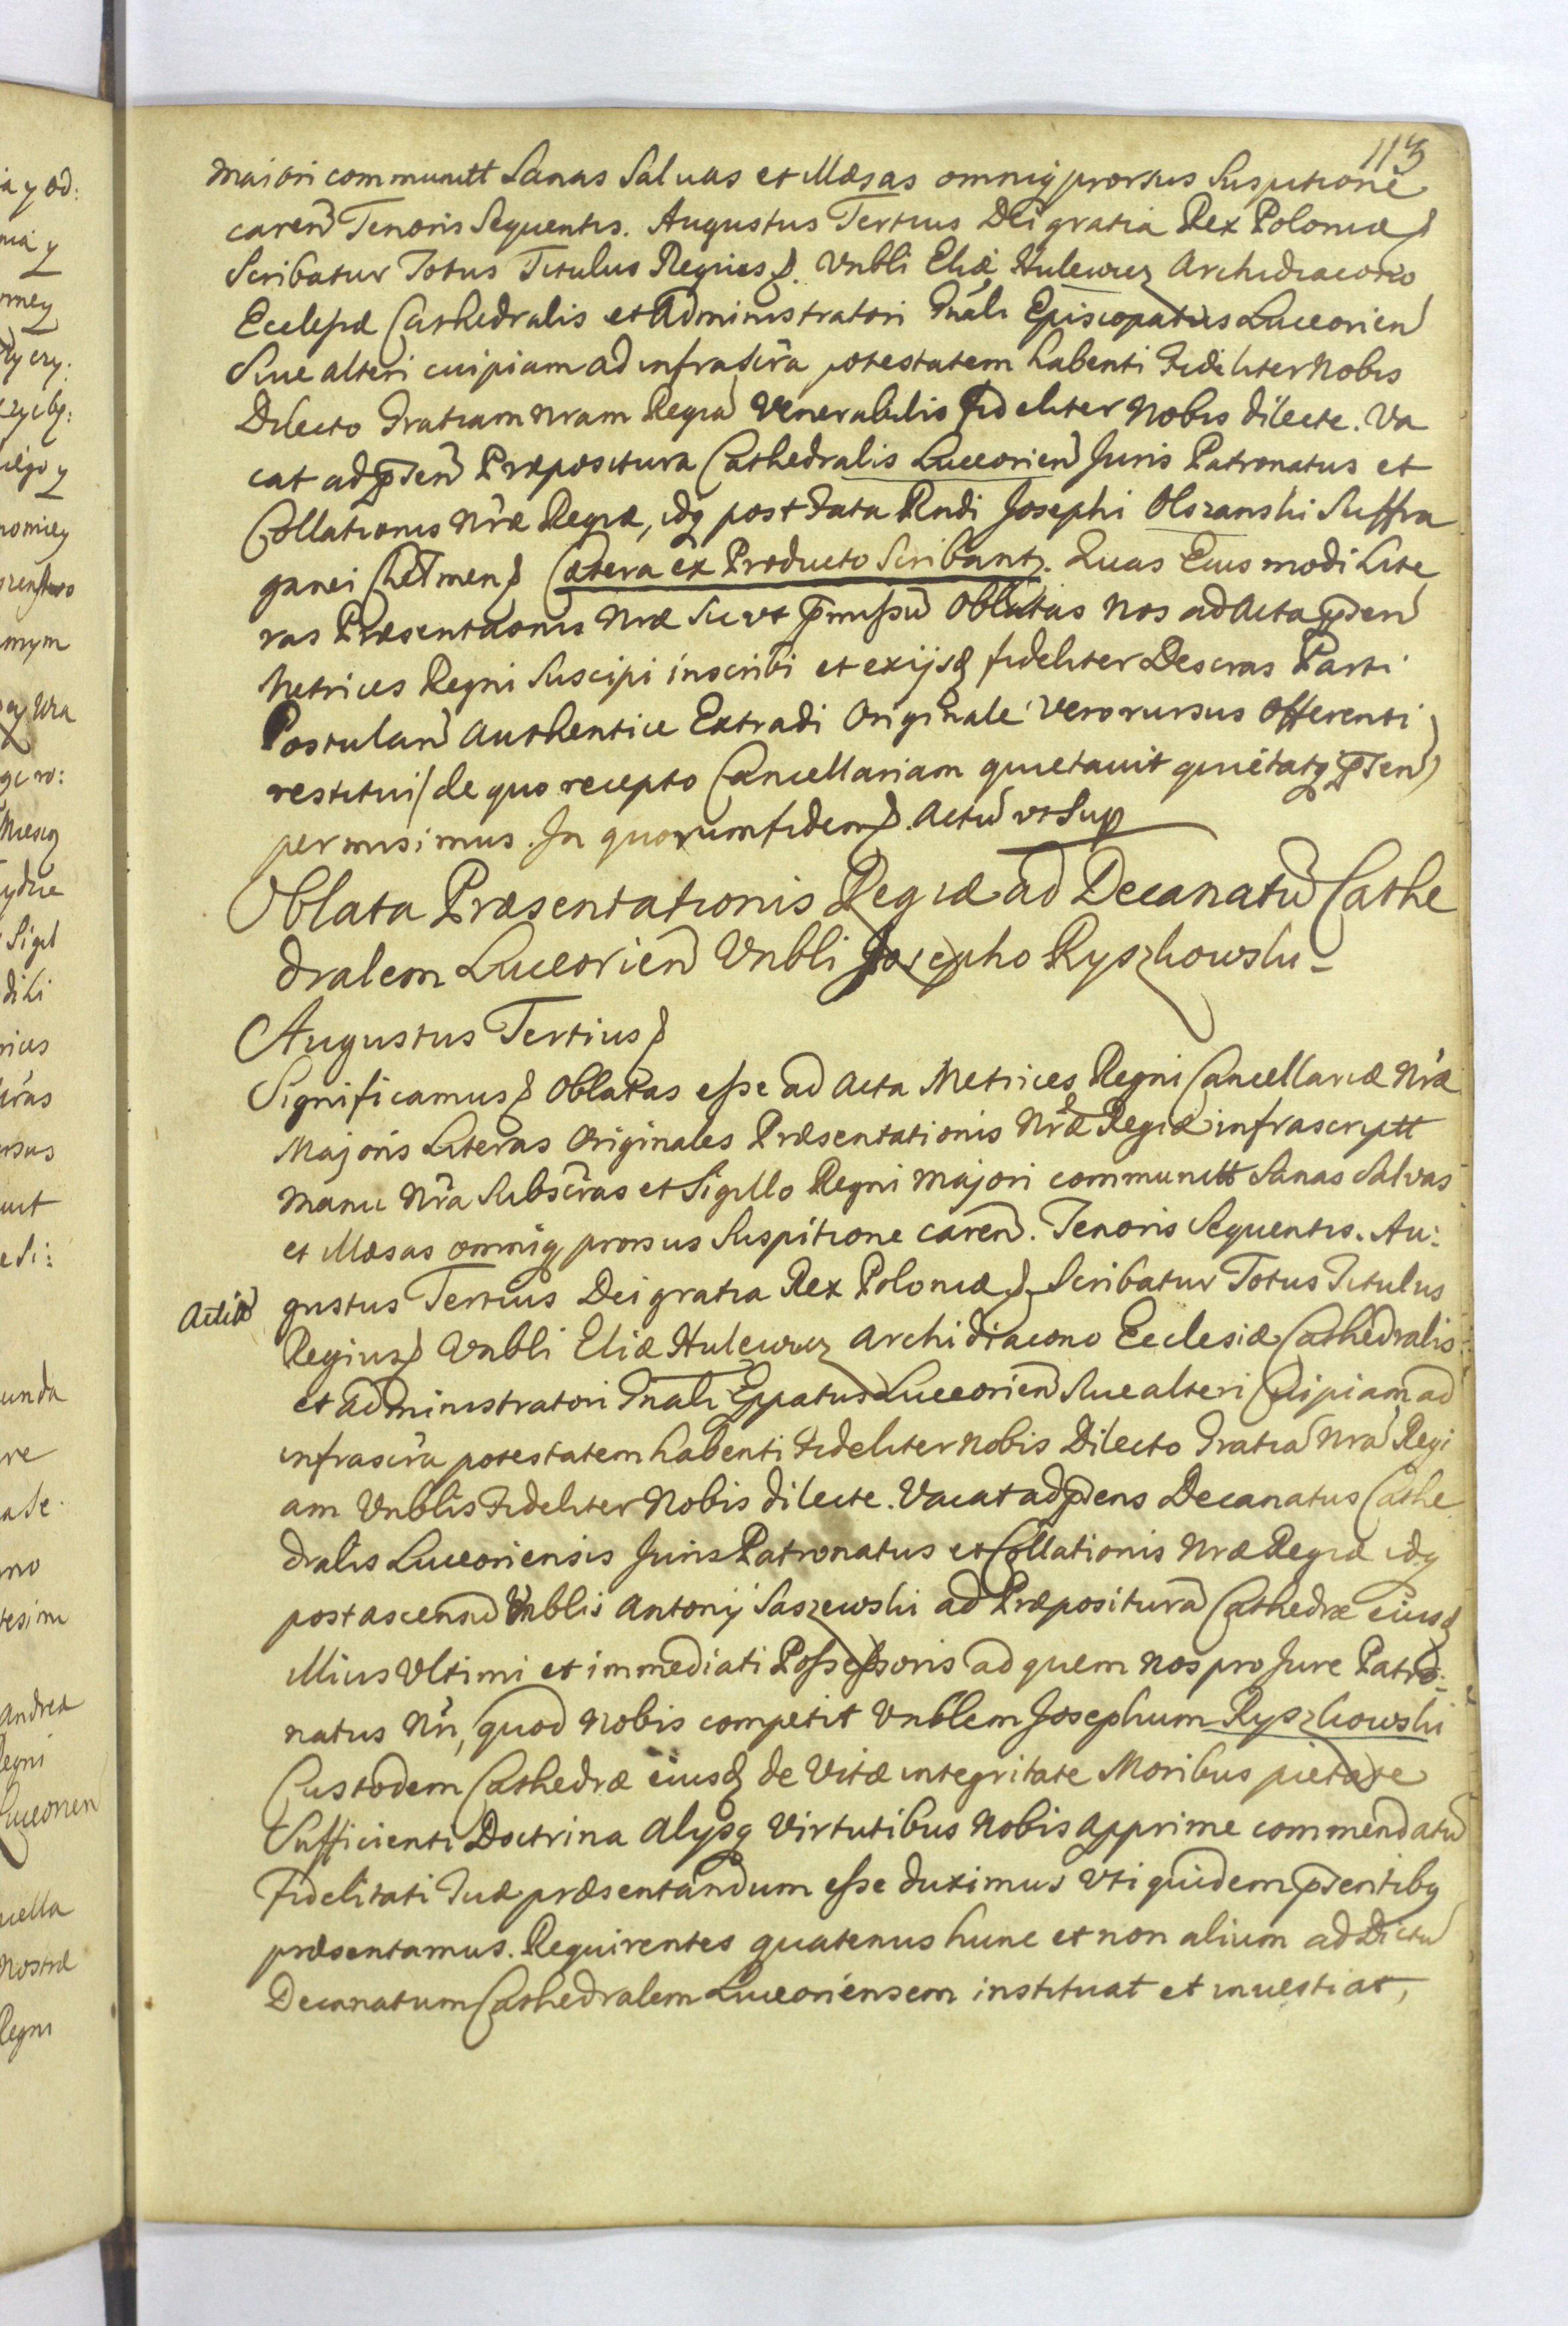 113
maiori communitt Sanas Saluas et Illæsas omniq prorsus Suspitione
caren Tenoris Sequentis. Augustus Tertius Dei gratia Rex Poloniæ
Scribatur Totus Titulus Regius. Vnbli Eliæ Hulewicz Archidiacono
Ecclesiæ Cathedralis et Administratori Gnali Episcopatus Luceorien
Siue alteri cuipiam ad infrascra potestatem habenti Fideliter Nobis
Dilecto Gratiam nram Regia Venerabilis Fideliter Nobis dilecte. Va
cat ad pnsen Præpositura Cathedralis Luceorien Juris Patronatus et
Collationis Nræ Regiæ, idq post Fata Rndi Josephi Olszanski Suffra
ganei Chełmen Cætera ex Producto Scribantr. Quas Eiusmodi Lite
ras Præsentaonis Nræ Sicvt pmissu Oblatas Nos ad Acta pnsen
Metrices Regni Suscipi inscribi et exijsq fideliter Descras Parti
Postulan Authentice Extradi Originale vero rursus Offerenti
restitui / de quo recepto Cancellariam quietauit quietatq pnsen
permisimus. In quorum fidem. Actu vt Sup
Oblata Præsentationis Regiæ ad Decanatu Cathe
dralem Luceorien Vnbli Josepho Ryszkowski _
Augustus Tertius
Significamus Oblatas esse ad Acta Metrices Regni Cancellariæ Nræ
Majoris Literas Originales Præsentationis Nræ Regiæ infrascriptt
manu Nra Subscras et Sigillo Regni majori communitt Sanas Salvas
et Illæsas omniq prorsus Suspitione caren. Tenoris Sequentis. Au:
gustus Tertius Dei gratia Rex Poloniæ Scribatur Totus Titulus
Regius Vnbli Eliæ Hulewicz Archidiacono Ecclesiæ Cathedralis
et administratori Gnali Eppatus Luceorien Siue alteri Cuipiam ad
infrascra potestatem habenti Fideliter Nobis Dilecto Gratia Nra Regi
am Vnblis Fideliter Nobis dilecte. Vacat ad pnsens Decanatus Cathe
dralis Luceoriensis Juris Patronatus et Collationis Nræ Regiæ idq
post ascensu Vnblis Antonij Saszewski ad Præpositura Cathedræ eiusd
illius Vltimi et immediati Possessoris ad quem nos pro Jure Patro:
natus Nri, quod Nobis competit Vnblem Josephum Ryszkowski
Custodem Cathedræ eiusd de Vitæ integritate Moribus pietate
Sufficienti Doctrina alysq Virtutibus Nobis apprime commendatu
Fidelitati Tuæ præsentandum esse duximus vti quidem pnsentibq
præsentamus. Requirentes quatenus hunc et non alium ad Dictu
Decanatum Cathedralem Luceoriensem instituat et inuestiat,